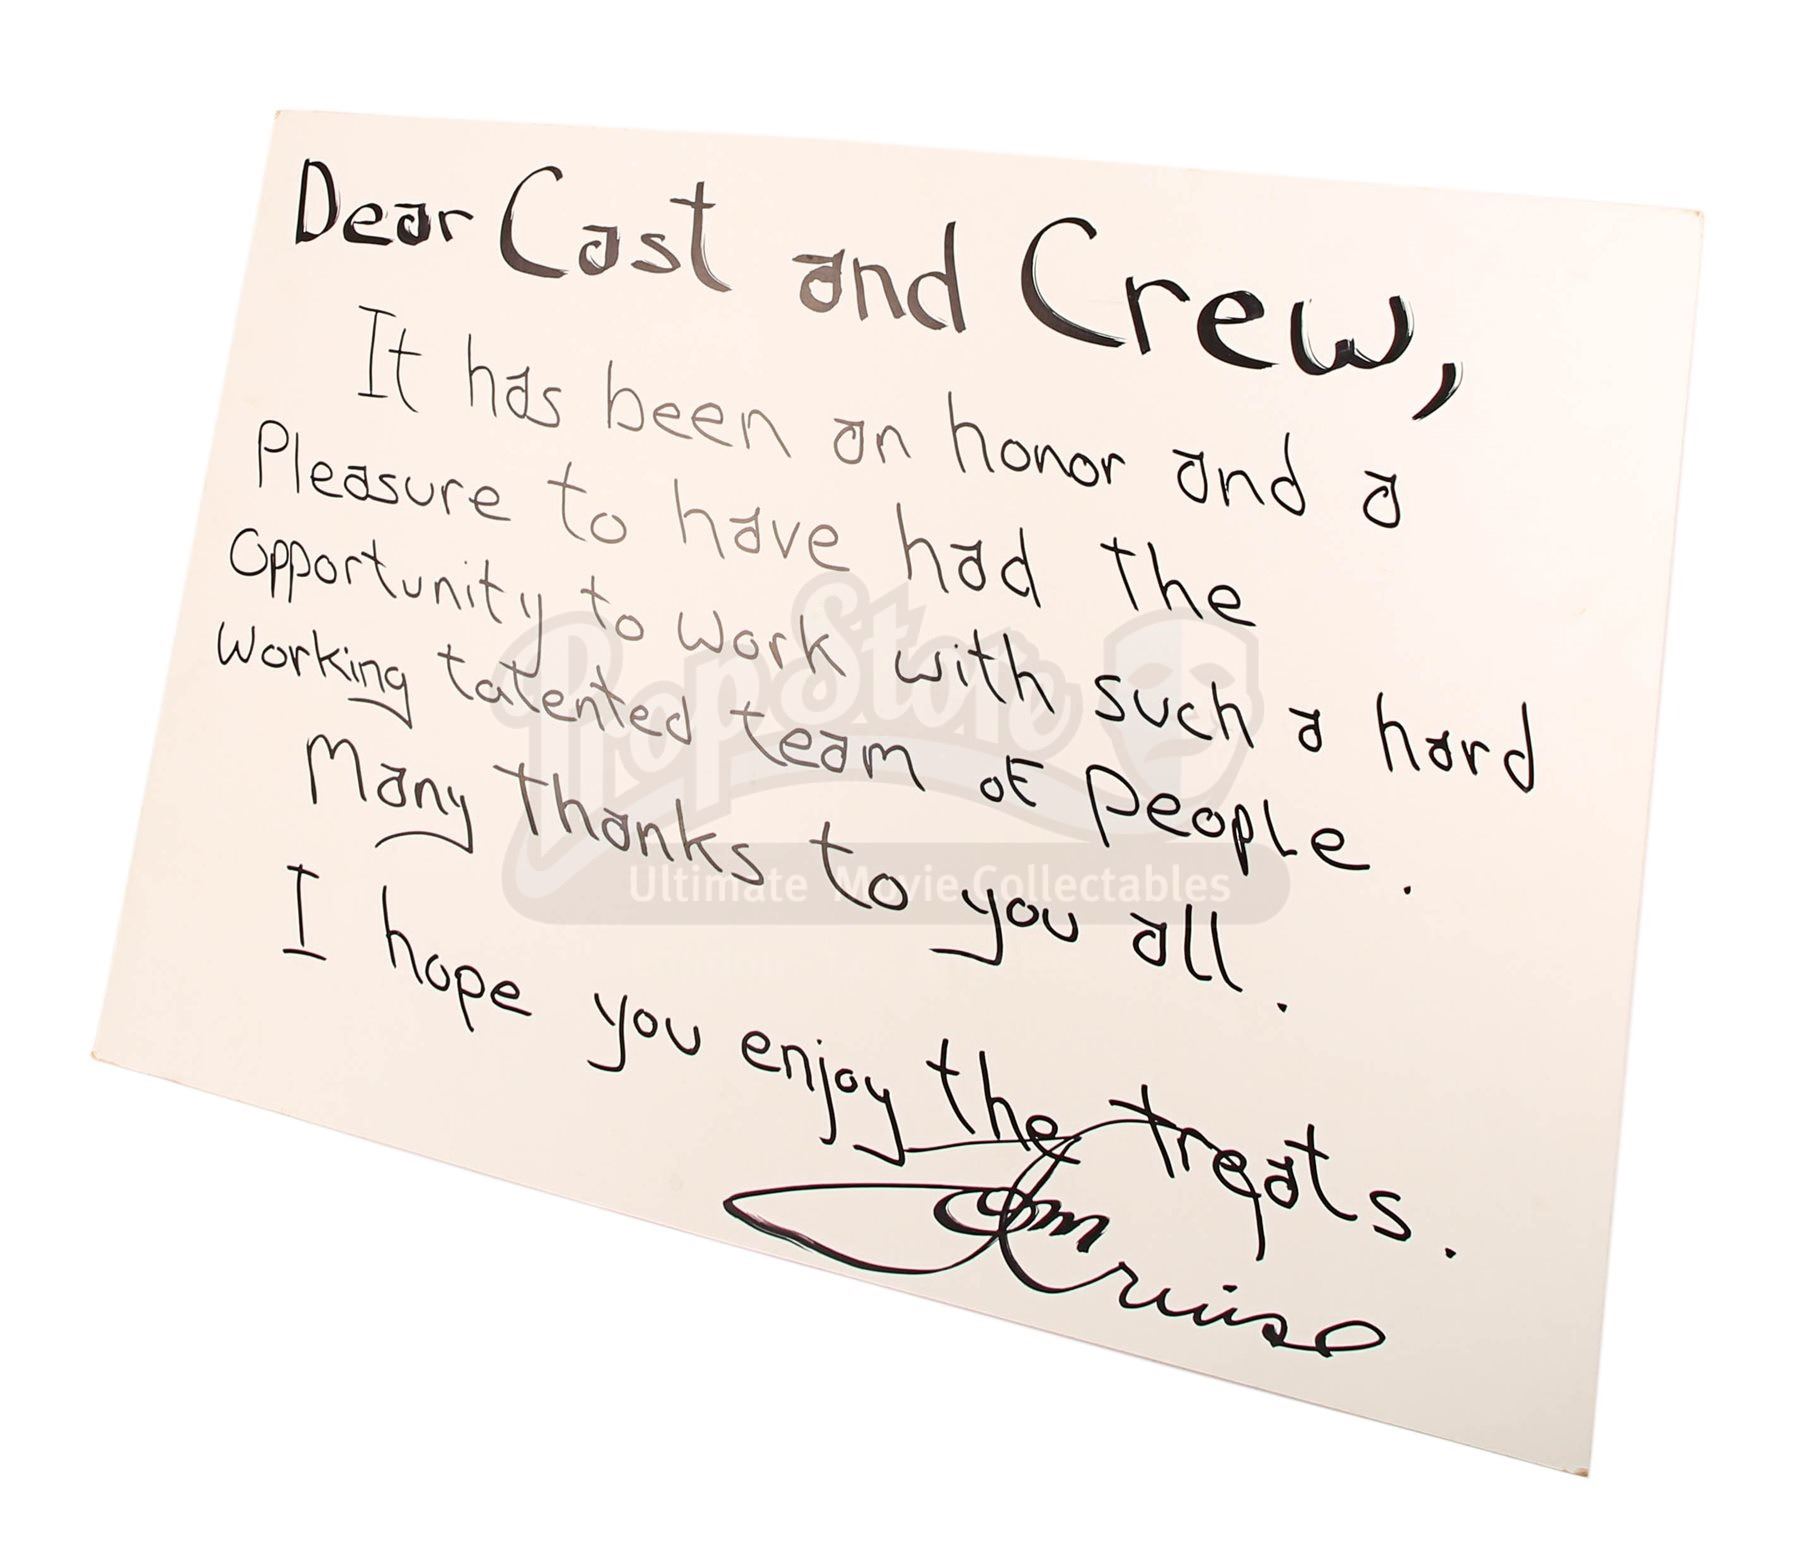 Dear Cast and Crew,
It has been an honor and a
Pleasure to have had the
Opportunity to work with such a hard
Working talented team of people.
Many thanks to you all.
I hope you enjoy the treats.
Tom Cruise
PropStore
Ultimate Movie Collectables